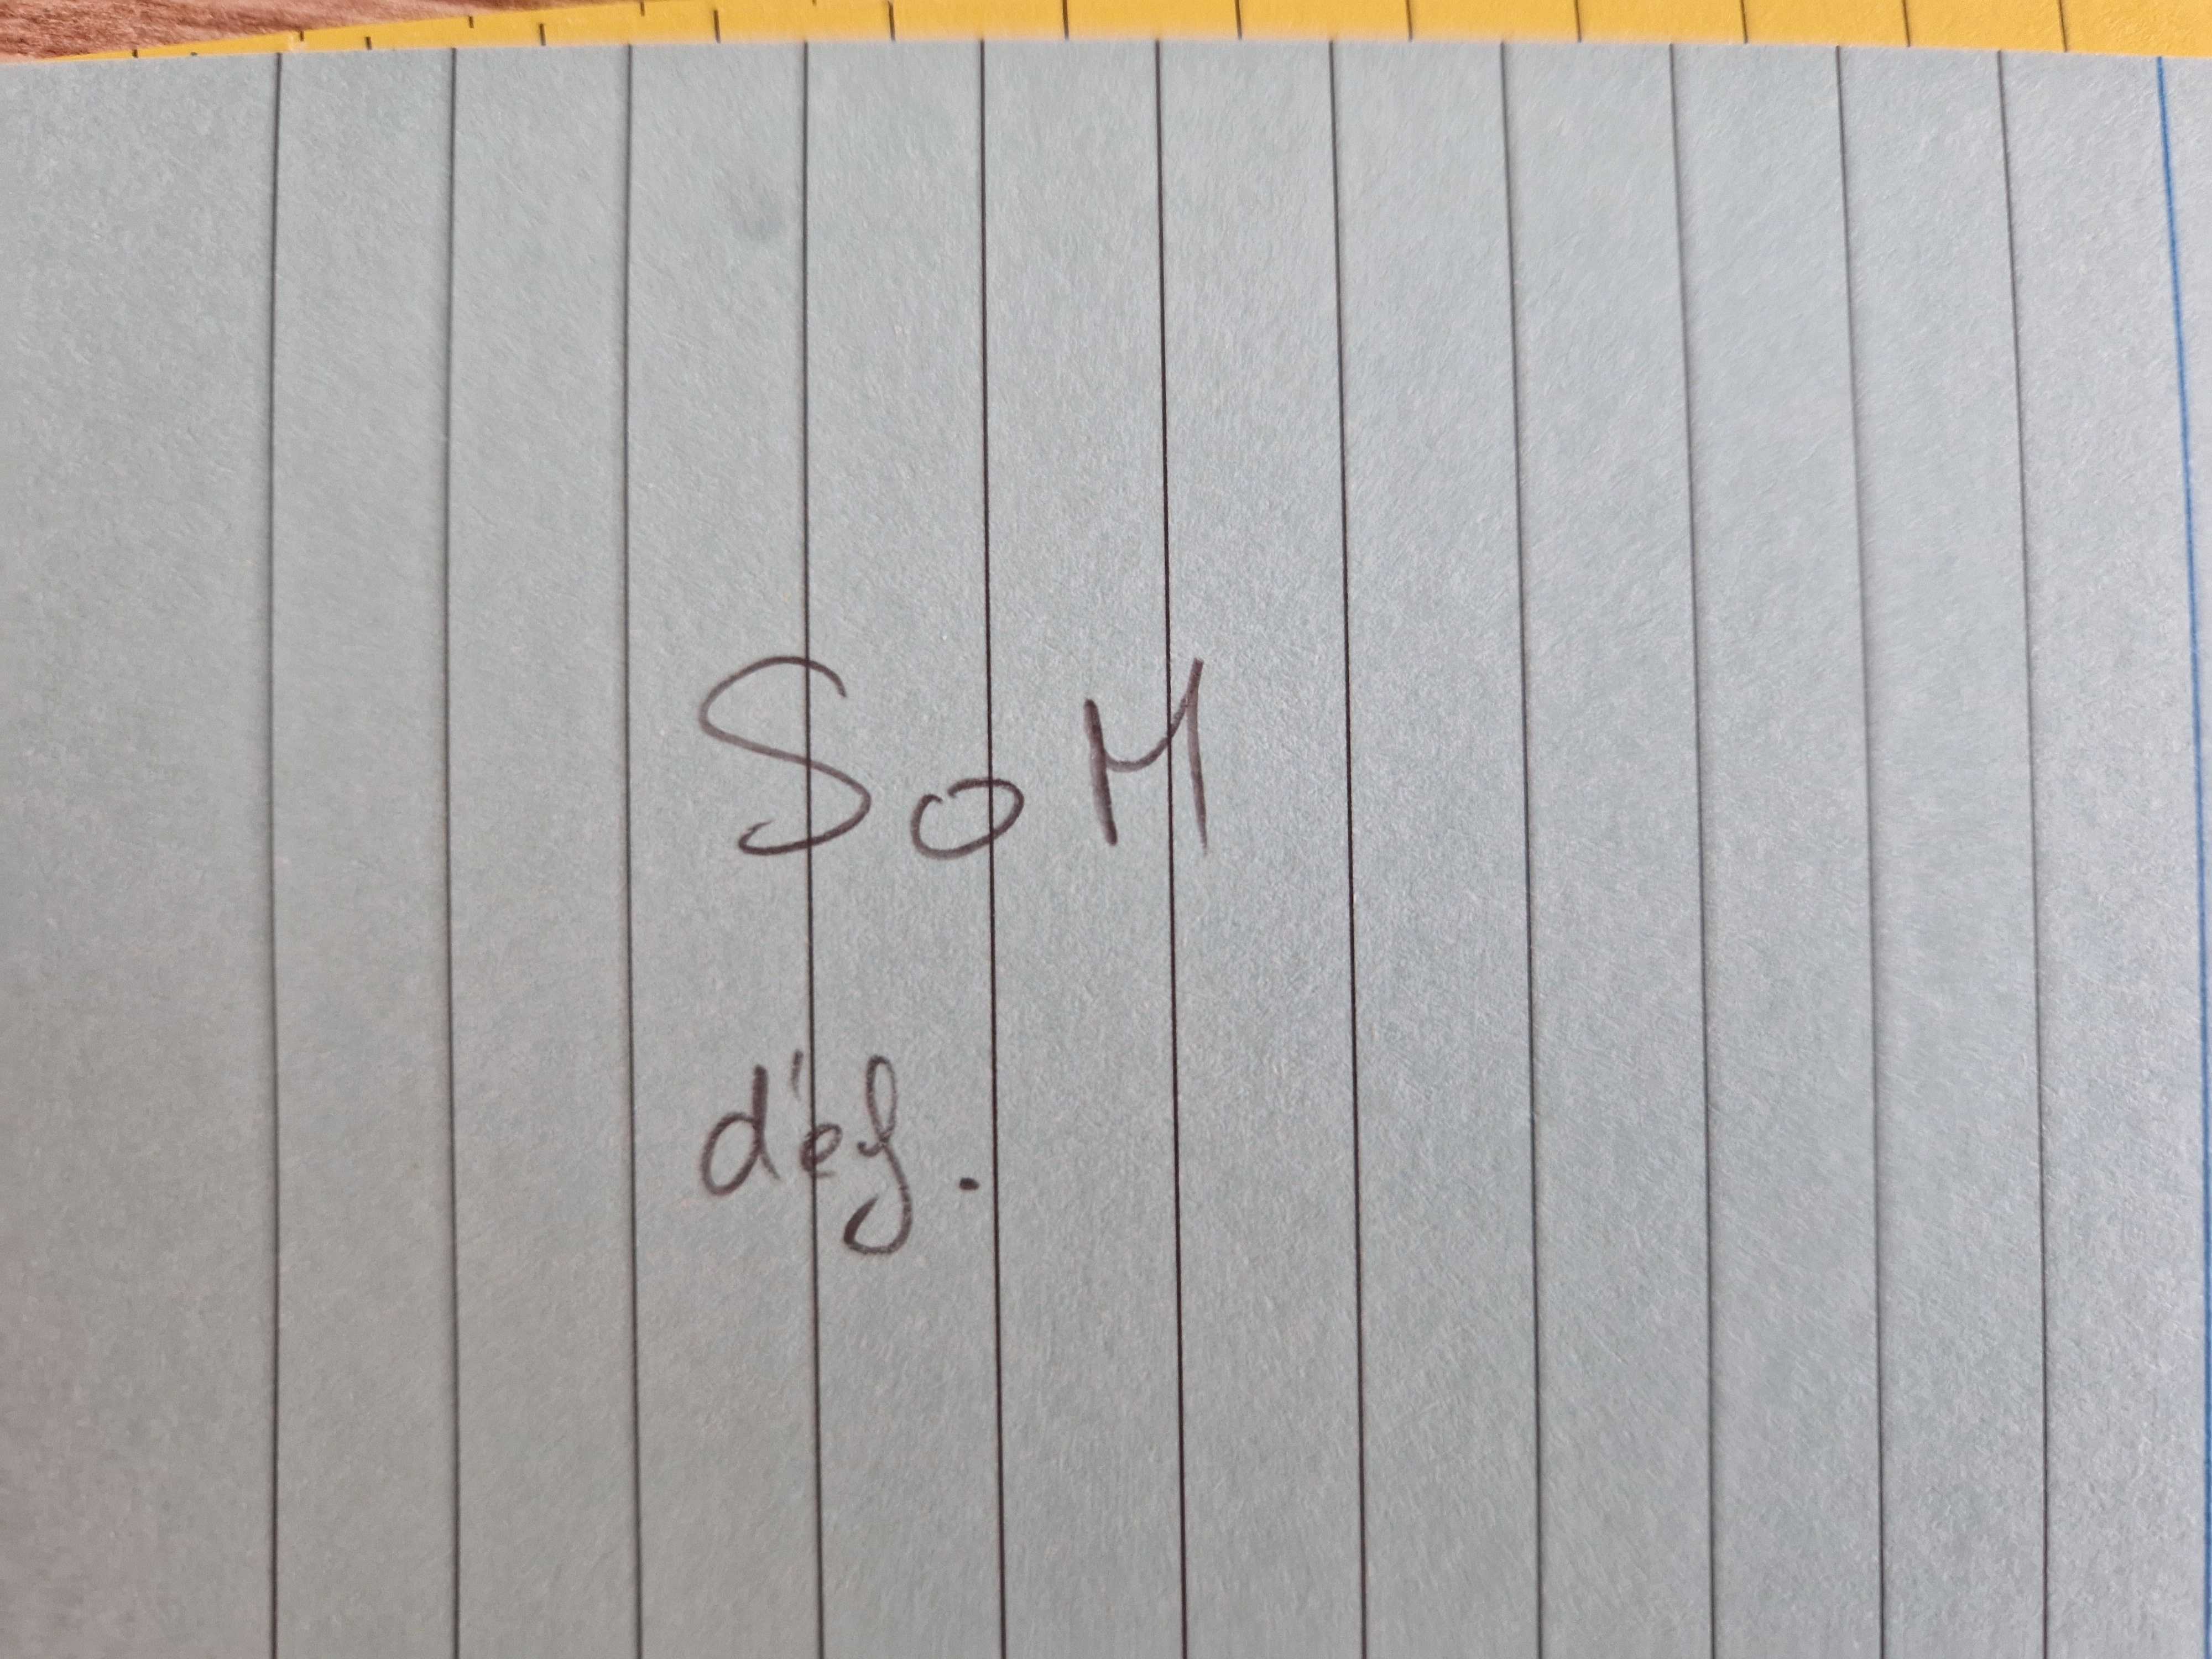 SoM
déf.